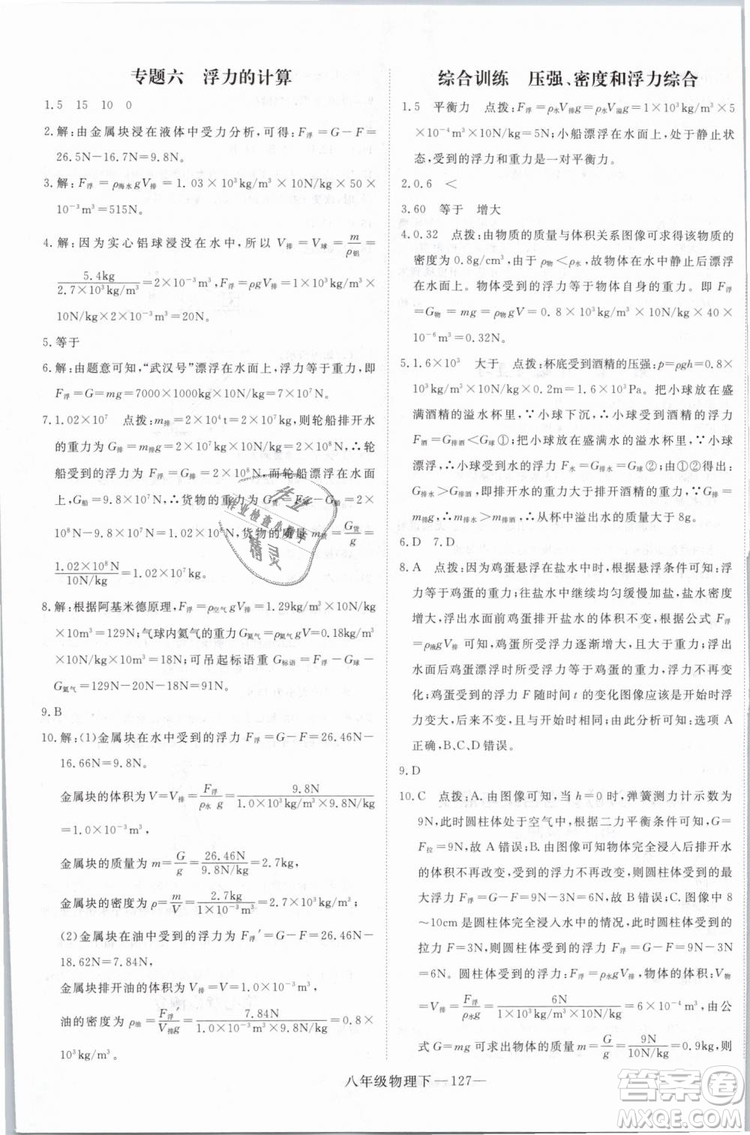 专题六 浮力的计算
1.5 15 10 0
2.解:由金属块浸在液体中受力分析,可得:F浮=G-F=
26.5N-16.7N=9.8N。
3.解:F浮=ρ海水gV排=1.03×10³kg/m³×10N/kg×50×
10⁻³m³=515N。
4.解:因为实心铝球浸没在水中,所以V排=V球=m/ρ铝=
5.4kg/2.7×10³kg/m³=2×10⁻³m³,F浮=ρ水gV排=1×10³kg/m³×
10N/kg×2×10⁻³m³=20N。
5.等于
6.解:由题意可知,“武汉号”漂浮在水面上,浮力等于重力,即
F浮=G=mg=7000×1000kg×10N/kg=7×10⁷N。
7.1.02×10⁷ 点拨:m排=2×10⁴t=2×10⁷kg,则轮船排开水
的重力为G排=m排g=2×10⁷kg×9.8N/kg=1.96×10⁸N,∴轮
船受到的浮力为F浮=G排=1.96×10⁸N,而轮船满载时,
G船=9.8×10⁷N,∴货物的重力为G货=F浮-G船=1.96×
10⁸N-9.8×10⁷N=9.8×10⁷N,货物的质量为m货=G货/g=
9.8×10⁷N/10N/kg=1.02×10⁷kg。
8.解:根据阿基米德原理,F浮=ρ空气gV排=1.29kg/m³×10N/kg
×10m³=129N;气球内氦气的重力G氦气=ρ氦气gV=0.18kg/m³
×10N/kg×10m³=18N;可吊起标语重G标语=F浮-G球-
G氦气=129N-20N-18N=91N。
9.B
10.解:(1)金属块在水中受到的浮力F浮=G-F=26.46N-
16.66N=9.8N。
金属块的体积为V=V排=F浮/ρ水g=9.8N/1.0×10³kg/m³×9.8N/kg=
1×10⁻³m³,
金属块的质量为m=G/g=26.46N/9.8N/kg=2.7kg,
金属块的密度为ρ=m/V=2.7kg/1×10⁻³m³=2.7×10³kg/m³;
(2)金属块在油中受到的浮力F浮′=G-F=26.46N-
18.62N=7.84N,
金属块排开油的体积为V排=V=1×10⁻³m³,
油的密度为ρ油=F浮′/V排g=7.84N/1.0×10⁻³m³×9.8N/kg=0.8×
10³kg/m³。
综合训练 压强、密度和浮力综合
1.5 平衡力 点拨:F浮=ρ水gV排=ρ水gV溢=1×10³kg/m³×5
×10⁻⁴m³×10N/kg=5N;小船漂浮在水面上,处于静止状
态,受到的浮力和重力是一对平衡力。
2.0.6 <
3.60 等于 增大
4.0.32 点拨:由物质的质量与体积关系图像可求得该物质的
密度为0.8g/cm³,因为ρ物<ρ水,故物体在水中是漂浮在水
面上的。物体受到的浮力等于物体自身的重力。即F浮
=G物=mg=ρ物gV物=0.8×10³kg/m³×10N/kg×40×
10⁻⁶m³=0.32N。
5.1.6×10³ 大于 点拨:杯底受到酒精的压强:p=ρgh=0.8×
10³kg/m³×10N/kg×0.2m=1.6×10³Pa。把小球放在盛
满酒精的溢水杯里,∵小球下沉,∴小球受到酒精的浮力
F酒=G排酒精<G球①;小球放在盛满水的溢水杯里,∵小球
漂浮,∴小球受到水的浮力F水=G排水=G球②;由①②可知,
G排水>G排酒精,∴m排水>m排酒精;∵排开酒精的质量m排酒精=
8g,∴从杯中溢出水的质量大于8g。
6.D 7.D
8.A 点拨:因为鸡蛋悬浮在盐水中,根据悬浮条件可知,浮
力等于重力;鸡蛋在盐水中继续均匀缓慢加盐,盐水的密
度增大,由于鸡蛋浸没,则排开盐水的体积不变,根据公式F浮
=ρ液gV排可知,鸡蛋受到的浮力逐渐增大,一直到鸡蛋漂浮
在水面上;最后鸡蛋漂浮时,浮力等于重力,浮力不再变
化;鸡蛋受到的浮力F随时间t的变化图像应该是开始浮力
等于重力,后来浮力增大,最后浮力等于重力;由此可知,选项A
正确,B、C、D错误。
9.D
10.C 点拨:A.由图像可知,当h=0时,弹簧测力计示数为
9N,此时圆柱体处于空气中,根据二力平衡条件可知,G=
F拉=9N,故A错误;B.由图像可知,圆柱体完全浸入后排开水
的体积不再改变,受到的浮力也不再改变,故B错误;C.图像中8
～10cm是圆柱体完全浸入水中的情况,此时圆柱体受到的
拉力F=3N,F浮=G-F=9N-3N=6N,由F浮=ρ水gV排可知V=
V排=F浮/ρ水g=6N/1.0×10³kg/m³×10N/kg=6×10⁻⁴m³,由公
式G=mg可求得物体的质量为m=G/g=9N/10N/kg=0.9kg,则
八年级物理下—127—
作业
作业检查小助手
精灵
答案圈
MXQE.COM